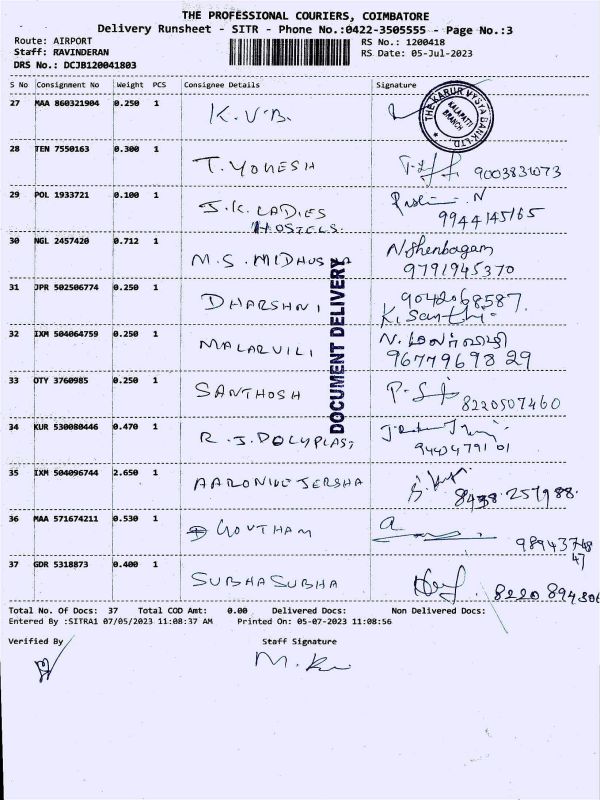 THE PROFESSIONAL COURIERS, COIMBATORE
Delivery Runsheet - SITR - Phone No.:0422-3505555 - Page No.:3
Route: AIRPORT
RS No.: 1200418
Staff: RAVINDERAN
RS Date: 05-Jul-2023
DRS No.: DCJB120041803
S No Consignment No Weight PCS Consignee Details Signature
27 MAA 860321904 0.250 1 K.V.B.
THE KARUR VYSYA BANK LTD.
KALAPATTI BRANCH
28 TEN 7550163 0.300 1 T. YOKESH 9003831073
29 POL 1933721 0.100 1 J.K. LADIES N
HOSTELS. 9944145165
30 NGL 2457420 0.712 1 M.S. MIDHUSHA N Shenbagam
9791945370
31 JPR 502506774 0.250 1 DHARSHNI 9042068587.
K. Santhi.
32 IXM 504064759 0.250 1 MALARVILI N.
9677969829
33 OTY 3760985 0.250 1 SANTHOSH 8220507460
34 KUR 530080446 0.470 1 R.J. DOLYPLAST
35 IXM 504096744 2.650 1
8438 257988.
36 MAA 571674211 0.530 1 GOUTHAM
37 GDR 5318873 0.400 1 SUBHASUBHA 8220 894306
DOCUMENT DELIVERY
Total No. Of Docs: 37 Total COD Amt: 0.00 Delivered Docs: Non Delivered Docs:
Entered By :SITRA1 07/05/2023 11:08:37 AM Printed On: 05-07-2023 11:08:56
Verified By Staff Signature